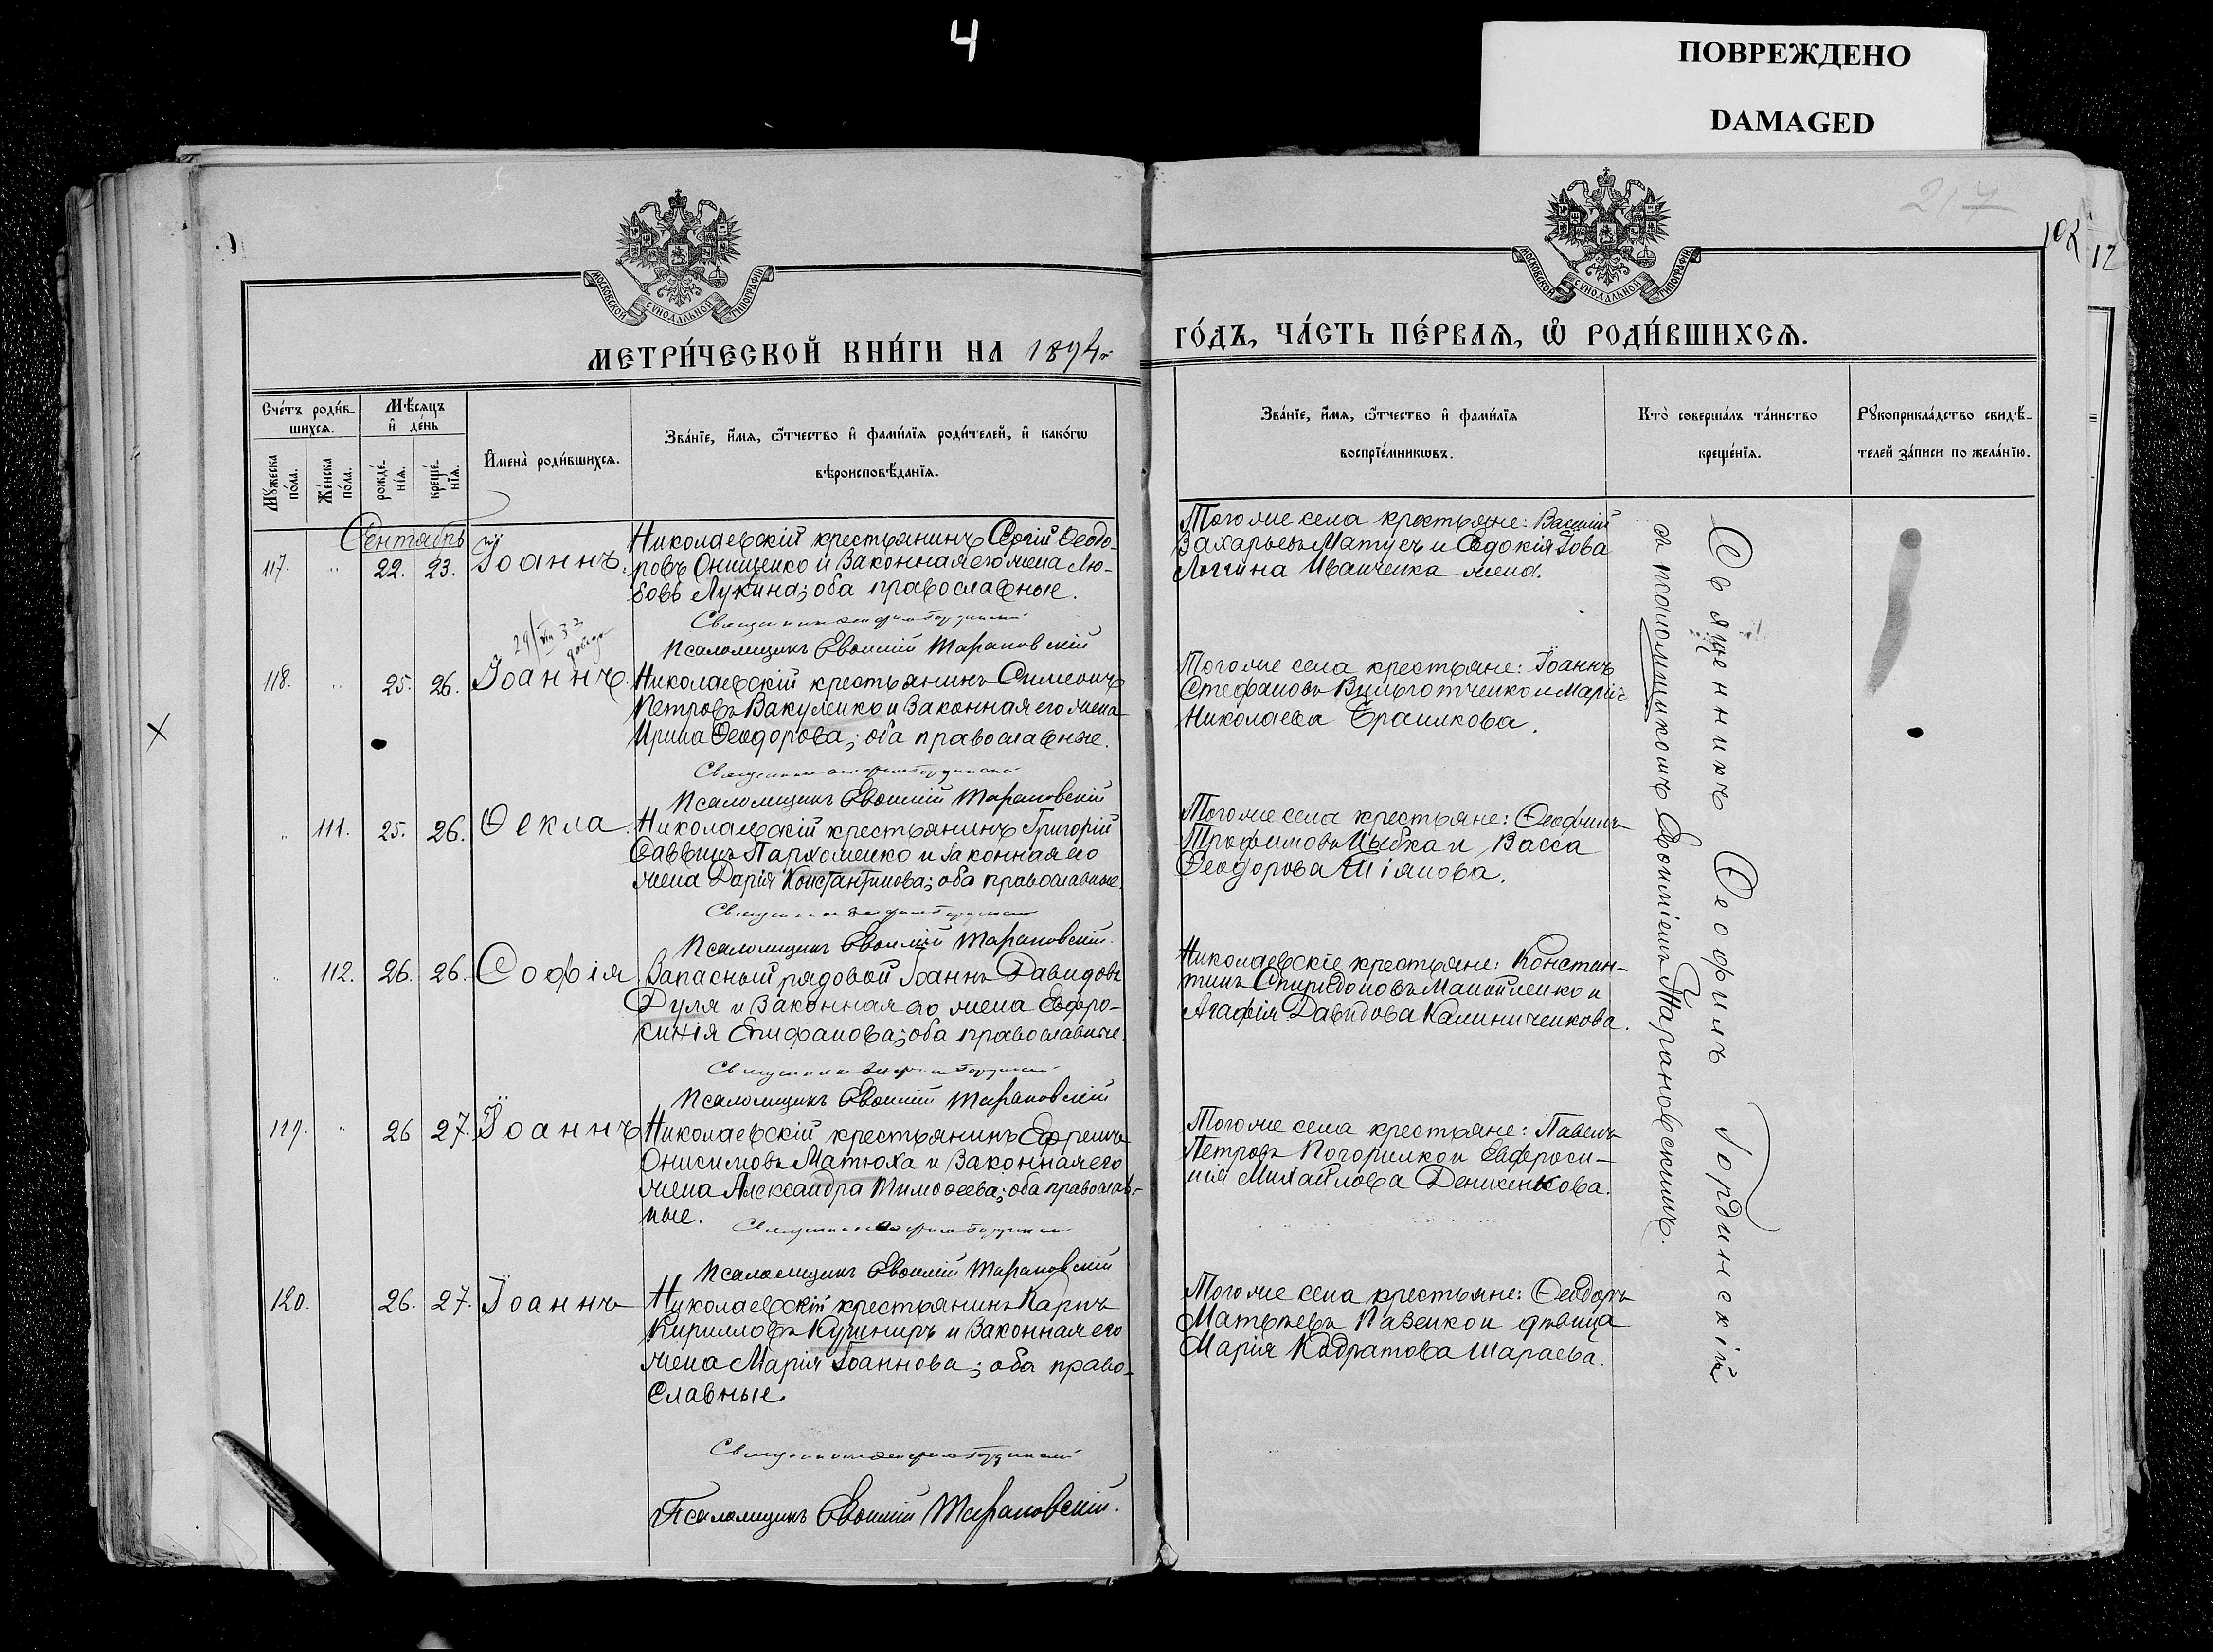 4
ПОВРЕЖДЕНО
DAMAGED
МОСКОВСКОЙ СѴНОДАЛЬНОЙ ТИПОГРАФІИ
МОСКОВСКОЙ СѴНОДАЛЬНОЙ ТИПОГРАФІИ
217
102
12
МЕТРИ́ЧЕСКОЙ КНИ́ГИ НА 1894 г
ГО́ДЪ, ЧА́СТЬ ПЕ́РВАЯ, Ѡ҆ РОДИ́ВШИХСЯ.
Сче́тъ роди́в-
шихся.
Мꙋ́жеска по́ла.
Же́нска по́ла.
Мѣ́сяцъ и҆ де́нь
рожде́-
нїѧ.
креще́-
нїѧ.
И҆мена̀ роди́вшихся.
Зва́нїе, и҆́мя, ѻ҆́тчество и҆ фами́лїя роди́телей, и҆ како́гѡ
вѣроисповѣ́данїя.
Зва́нїе, и҆́мя, ѻ҆́тчество и҆ фами́лїя
воспрїе́мникѡвъ.
Кто̀ соверша́лъ та́инство
креще́нїя.
Рꙋкоприкла́дство свидѣ́-
телей за́писи по жела́нїю.
Сентябрь
117. " 22. 23. Іоаннъ.
Николаевскій крестьянинъ Сергій Ѳеодо-
ровъ Онищенко и законная его жена Лю-
бовь Лукина; оба православные.
Священникъ Ѳеофилъ Гординскій
Псаломщикъ Евѳимій Тарановскій
Того же села крестьяне: Василій
Захарьевъ Матусъ и Евдокія Іова
Логгина Иванченка жена.
118. " 25. 26. Іоаннъ.
Николаевскій крестьянинъ Симеонъ
Петровъ Вакуленко и законная его жена
Ирина Ѳеодорова; оба православные.
Священникъ Ѳеофилъ Гординскій
Псаломщикъ Евѳимій Тарановскій
Того же села крестьяне: Іоаннъ
Стефановъ и Марія
Николаева
" 111. 25. 26. Ѳекла.
Николаевскій крестьянинъ Григорій
Саввинъ Пархоменко и законная его
жена Дарія Константинова; оба православные.
Священникъ Ѳеофилъ Гординскій
Псаломщикъ Евѳимій Тарановскій.
Того же села крестьяне: Ѳеофилъ
Трофимовъ Цыбка и Васса
Ѳеодорова Шіянова.
" 112. 26. 26. Софія
Запасный рядовой Іоаннъ Давидовъ
Дуля и законная его жена Евфро-
синія Епифанова; оба православные.
Священникъ Ѳеофилъ Гординскій
Псаломщикъ Евѳимій Тарановскій
Николаевскіе крестьяне: Констан-
тинъ Спиридоновъ Манойленко и
Агафія Давидова Калиниченкова.
119. " 26 27. Іоаннъ
Николаевскій крестьянинъ Ефремъ
Онисимовъ Матюха и законная его
жена Александра Тимоѳеева; оба православ-
ные.
Священникъ Ѳеофилъ Гординскій
Псаломщикъ Евѳимій Тарановскій
Того же села крестьяне: Павелъ
Петровъ Погорилко и Евфроси-
нія Михайлова Денисенкова.
120. 26. 27. Іоаннъ
Николаевскій крестьянинъ Карпъ
Кирилловъ Кушниръ и законная его
жена Марія Іоаннова; оба право-
славные.
Священникъ Ѳеофилъ Гординскій
Псаломщикъ Евѳимій Тарановскій.
Того же села крестьяне: Ѳеодоръ
Матѳеевъ Пазенко и дѣвица
Марія Кодратова Шараева.
Священникъ Ѳеофилъ Гординскій
съ псаломщикомъ Евѳиміемъ Тарановскимъ.